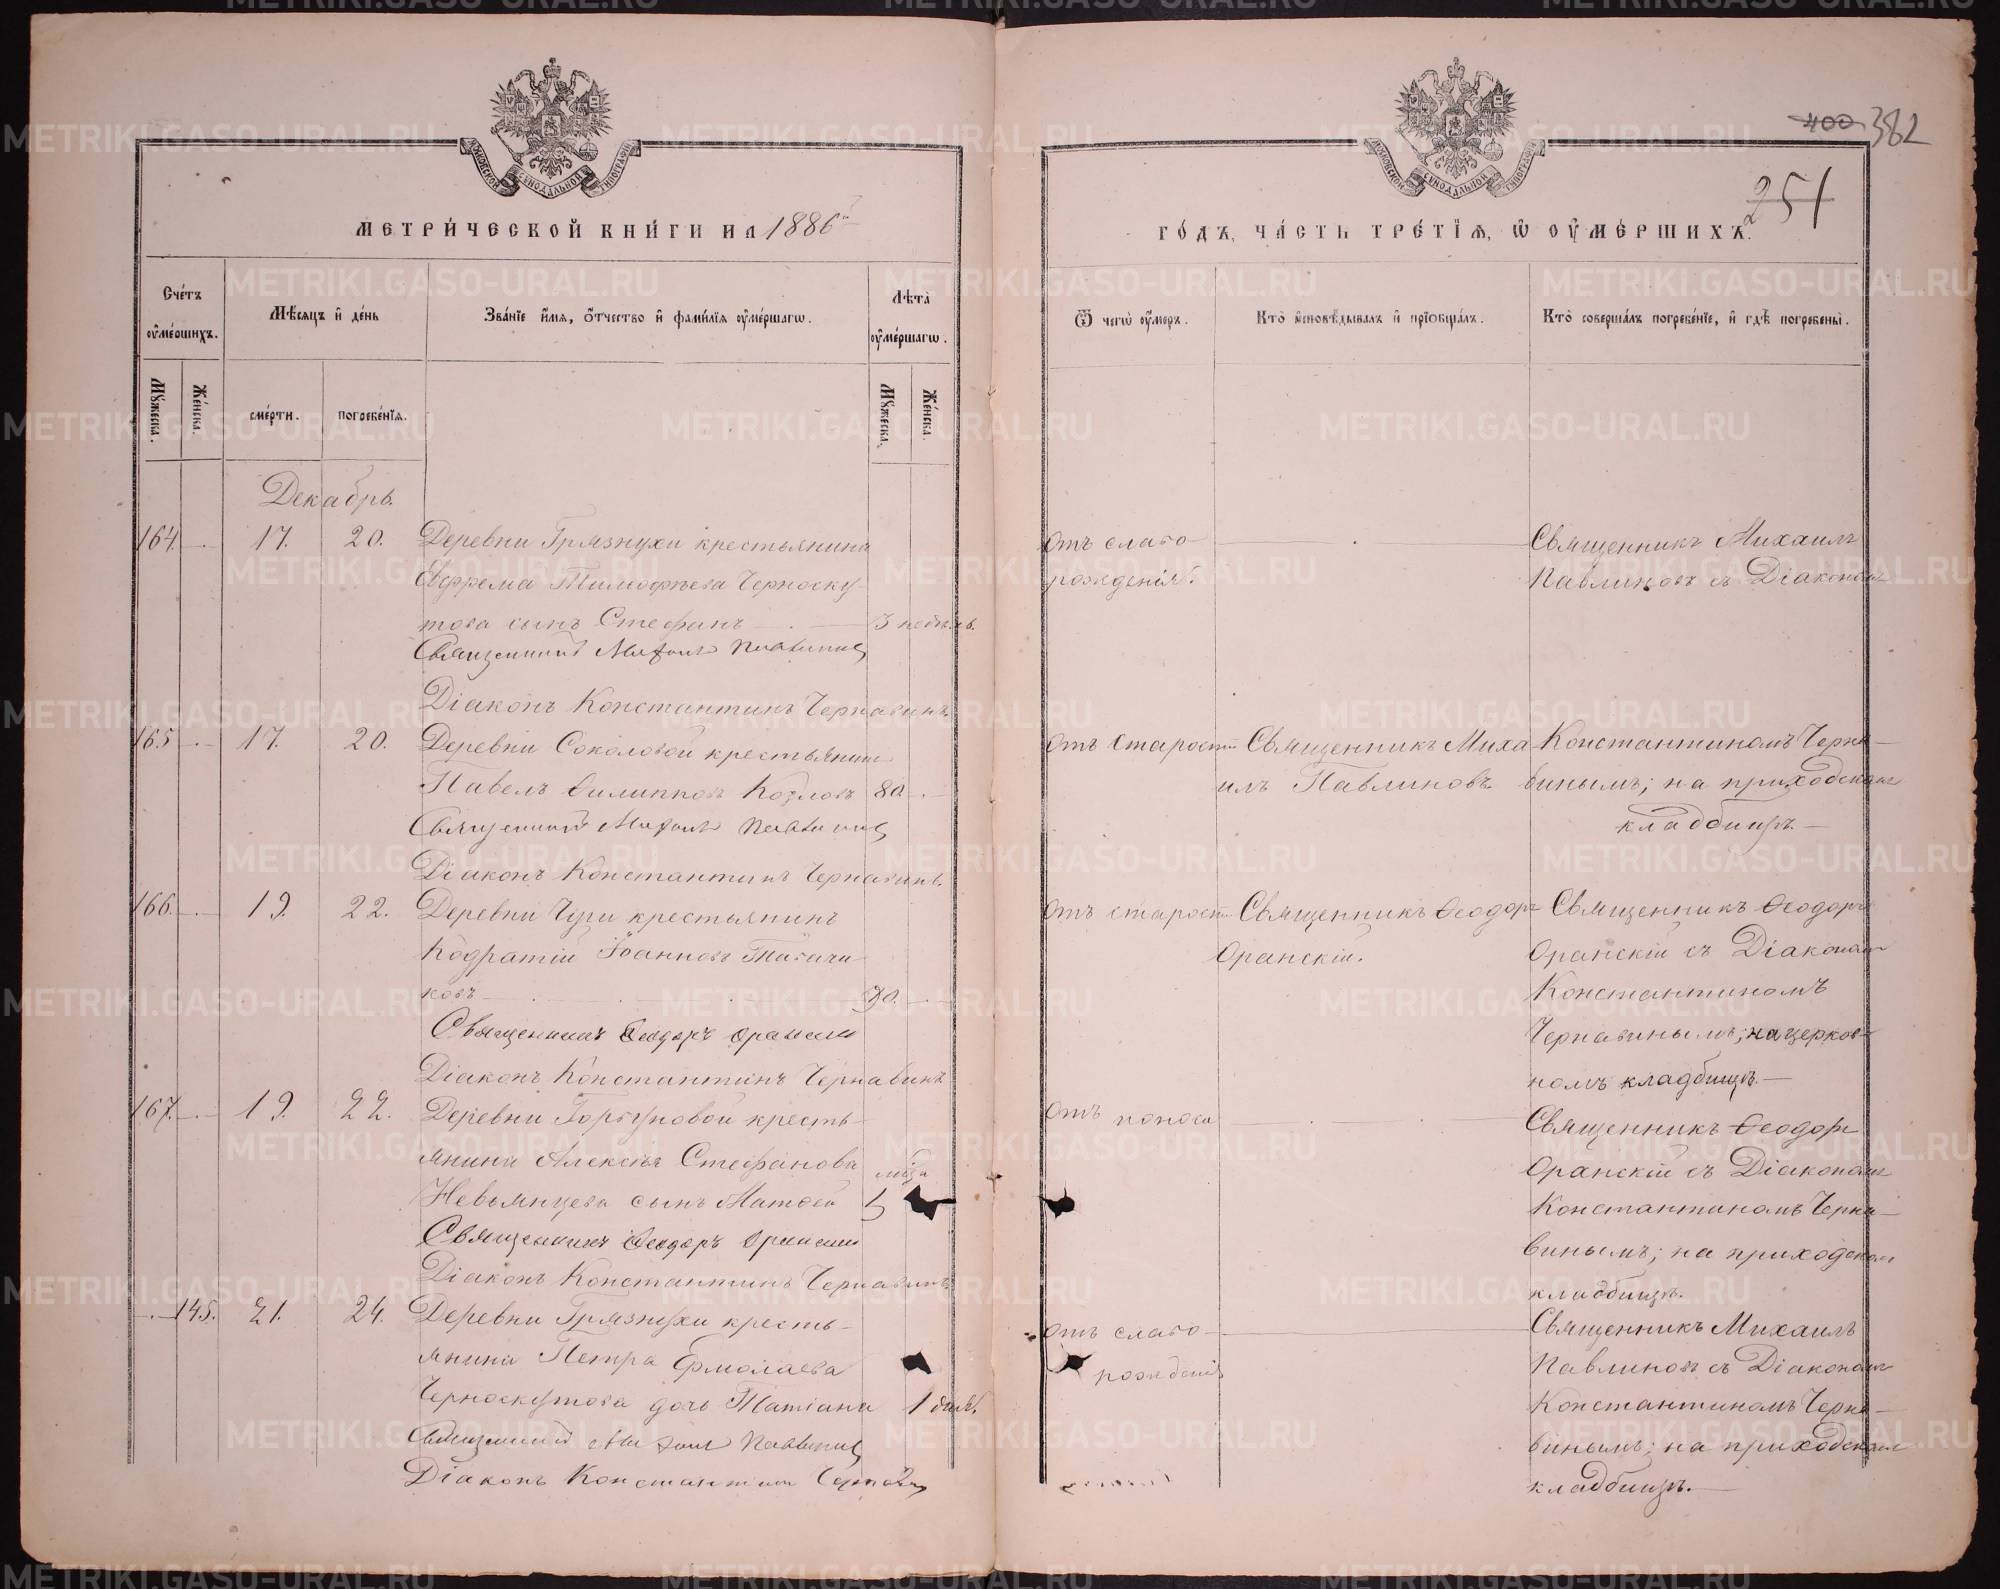 400 382
251
МОСКОВСКОЙ СѴНОДАЛЬНОЙ ТИПОГРАФІИ
МОСКОВСКОЙ СѴНОДАЛЬНОЙ ТИПОГРАФІИ
МЕТРИ́ЧЕСКОЙ КНИ́ГИ НА 1886й
ГО́ДЪ, ЧА́СТЬ ТРЕ́ТІѦ, Ѡ ОУМЕ́РШИХЪ.
Сче́тъ оумершихъ.
Мѣсяцъ и день
Зва́нїе и҆мя, ѻ҆тчество и҆ фами́лїя оумершагѡ.
Лѣта оумершагѡ.
Ѿ чегѡ̀ оумеръ.
Кто̀ и҆сповѣдывалъ и҆ прїобщалъ.
Кто̀ совершалъ погребенїе, и҆ гдѣ погребены̀.
Мужеска.
Женска.
смерти.
погребенїя.
Мужеска.
Женска.
Декабрь.
164. 17. 20. Деревни Грязнухи крестьянина
Ефрема Тимофѣева Черноску-
това сынъ Стефанъ 3 недѣль.
Священникъ Михаилъ Павлинов
Діаконъ Константинъ Чернавинъ.
Отъ слабо-
рожденія.
Священникъ Михаилъ
Павлиновъ съ Діакономъ
165 17. 20. Деревни Соколовой крестьянинъ
Павелъ Филипповъ Козловъ 80.
Священникъ Михаилъ Павлинов
Діаконъ Константинъ Чернавинъ.
Отъ старости Священникъ Миха
илъ Павлиновъ.
Константиномъ Черна-
винымъ; на приходскомъ
кладбищѣ.
166. 19. 22. Деревни Чуги крестьянинъ
Кодратій Іоанновъ
ковъ 70.
Священникъ Ѳеодоръ Оранский
Діаконъ Константинъ Чернавинъ
Отъ старости Священникъ Ѳеодоръ
Оранскій.
Священникъ Ѳеодоръ
Оранскій съ Діакономъ
Константиномъ
Чернавинымъ; на церков-
номъ кладбищѣ.
167. 19. 22. Деревни Горбуновой кресть-
янина Алексѣя Стефанова мѣся
Невьянцева сынъ Матѳей 5
Священникъ Ѳеодоръ Оранский
Діаконъ Константинъ Чернавинъ
Отъ поноса
Священникъ Ѳеодоръ
Оранскій съ Діакономъ
Константиномъ Черна-
винымъ; на приходскомъ
кладбищѣ.
145. 21. 24. Деревни Грязнухи кресть-
янина Петра Ермолаева
Черноскутова дочь Татіана 1 дня.
Священникъ Михаилъ Павлинов
Діаконъ Константин Чернавин
Отъ слабо-
рожденія
Священникъ Михаилъ
Павлиновъ съ Діакономъ
Константиномъ Черна-
винымъ; на приходскомъ
кладбищѣ.
METRIKI.GASO-URAL.RU